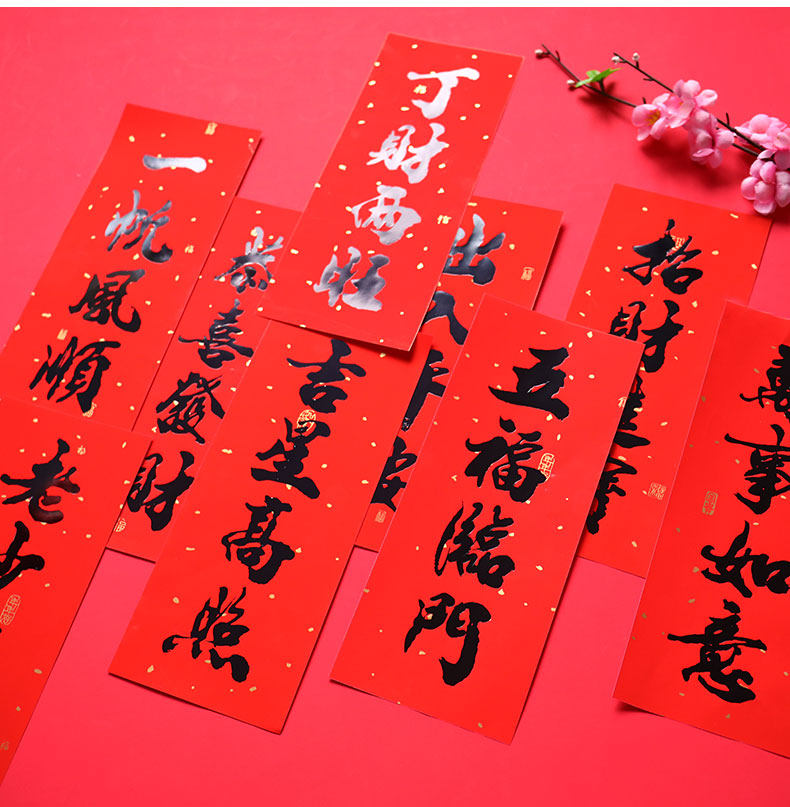 丁財两旺
一帆風順
恭喜發財
出入平安
招財進寶
吉星高照
五福臨門
萬事如意
老少